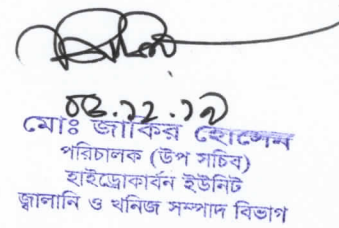 মোঃ জাকির হোসেন
পরিচালক (উপ সচিব)
হাইড্রোকার্বন ইউনিট
জ্বালানি ও খনিজ সম্পাদ বিভাগ